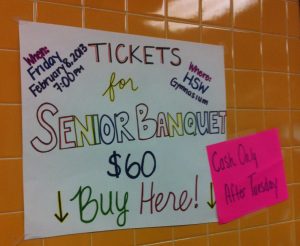 When:
Friday
February 8, 2013
7:00 PM
TICKETS
for
Where:
HSW
Gymnasium
SENIOR BANQUET
$60
↓ Buy Here! ↓
Cash Only
After Tuesday